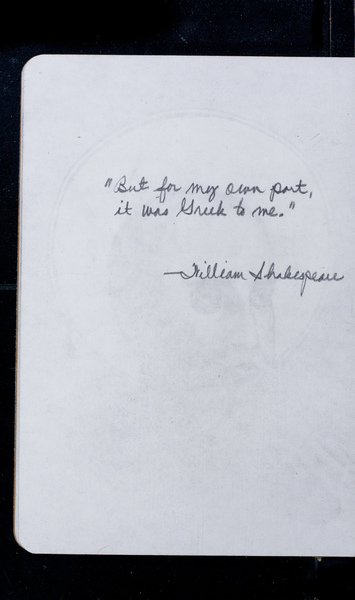 "But for my own part,
it was Greek to me."
—William Shakespeare